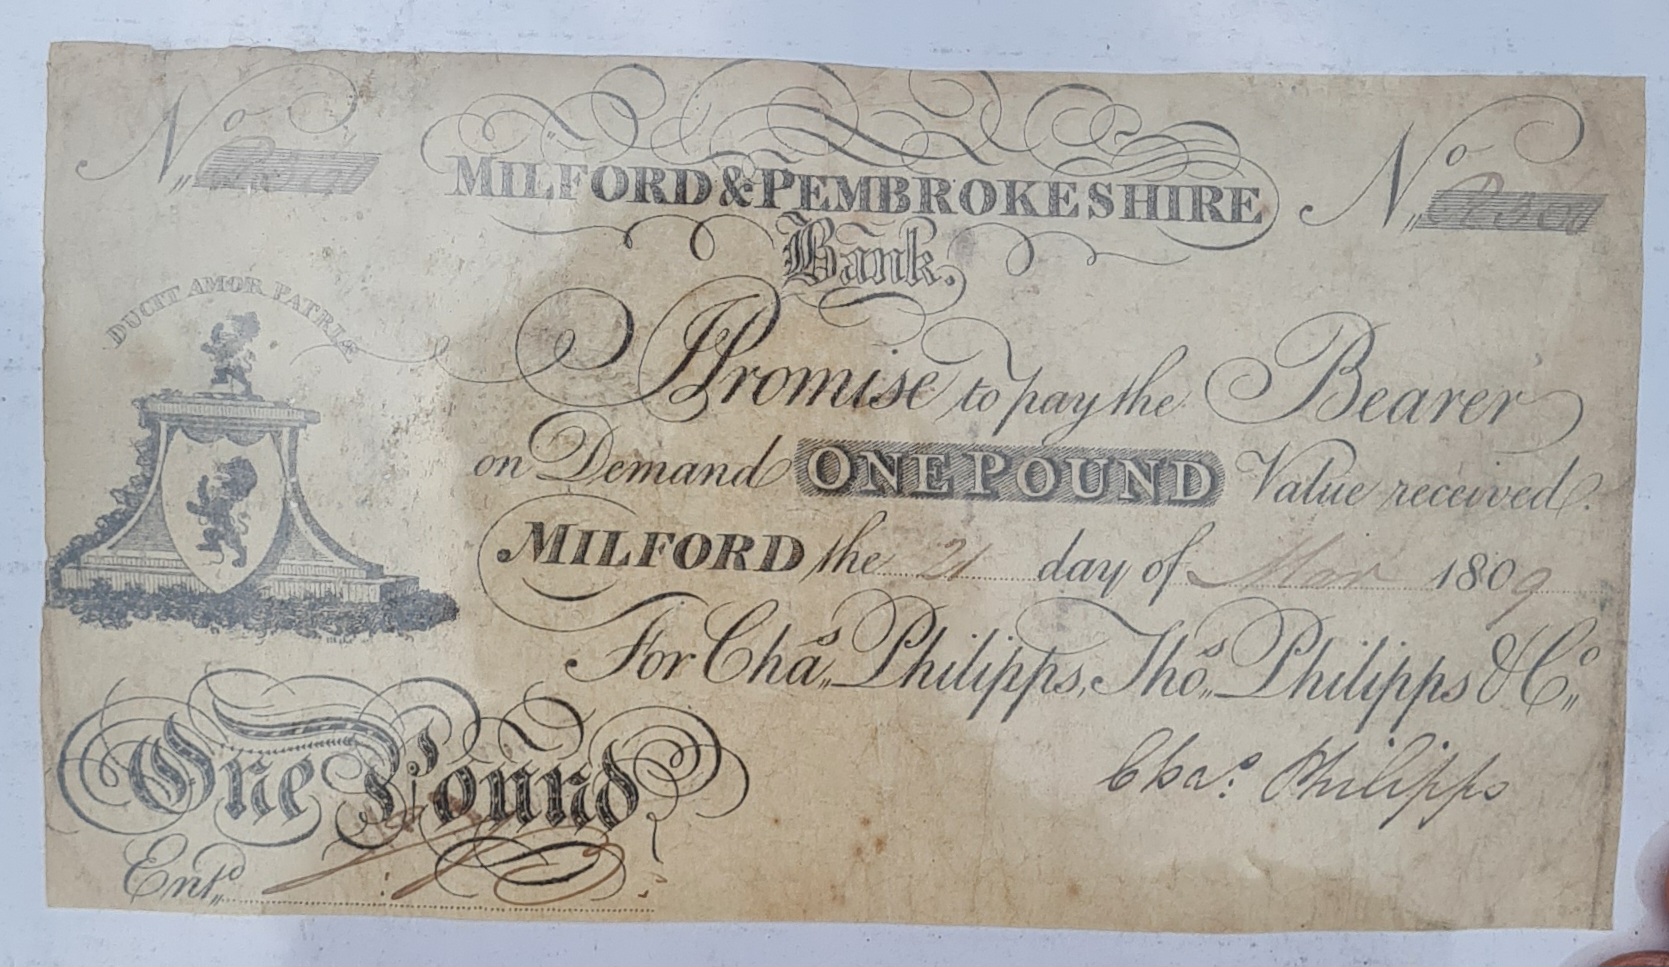 No
No
MILFORD & PEMBROKESHIRE
Bank.
DUCIT AMOR PATRIÆ
I Promise to pay the Bearer
on Demand ONE POUND Value received.
MILFORD the 21 day of Mar 1809
For Chas. Philipps, Thos. Philipps & Co.
Chas. Philipps
One Pound
Entd.